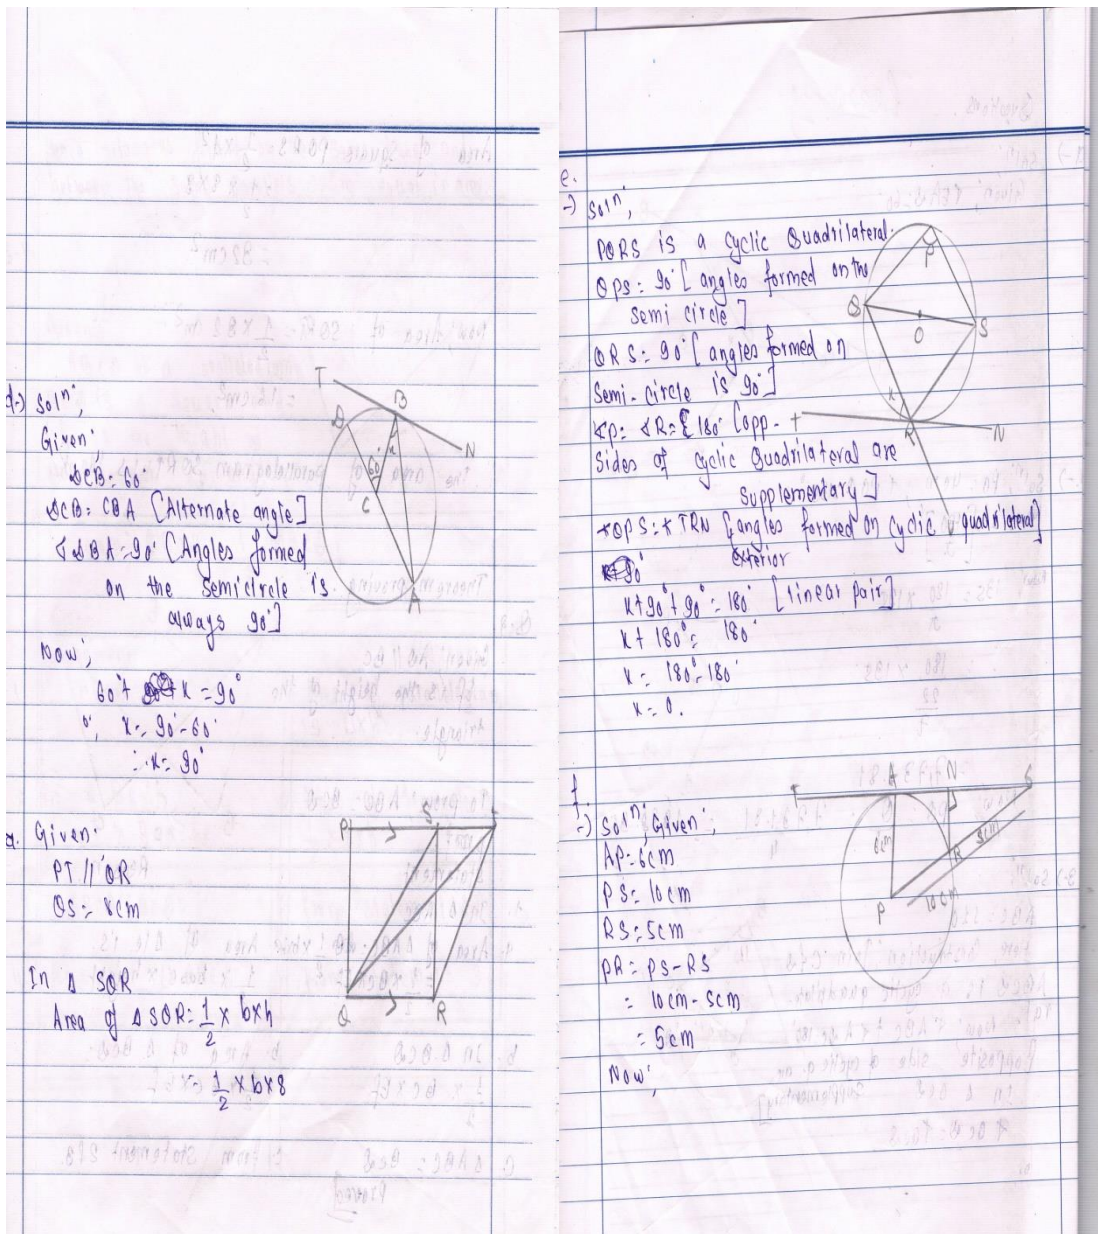 d→) Solⁿ,
Given:
DCB = 60°
DCB = CBA [Alternate angle]
∡DBA = 90° [Angles formed
on the semicircle is
always 90°]
Now,
60° + x = 90°
or, x = 90° - 60°
∴ x = 90°
T
B
D
N
60°
x
C
A
a. Given:
PT // QR
QS = 8cm
In Δ SQR
Area of Δ SQR = 1/2 × b×h
= 1/2 × b×8
P
S
T
Q
R
e.
→) Solⁿ,
PQRS is a cyclic Quadrilateral.
QPS = 90° [angles formed on the
semi circle]
QRS = 90° [angles formed on
Semi-circle is 90°]
∡P = ∡R = 180° [opp-
Sides of cyclic Quadrilateral are
Supplementary]
∡QPS = ∡TRN [angles formed on cyclic quadrilateral]
exterior
x + 90° + 90° = 180° [linear pair]
x + 180° = 180°
x = 180° - 180°
x = 0.
P
Q
O
S
x
T
R
N
f.
→) Solⁿ, Given,
AP = 6cm
PS = 10cm
RS = 5cm
PR = PS - RS
= 10cm - 5cm
= 5cm
Now,
T
A
N
S
6cm
5cm
R
P
10cm